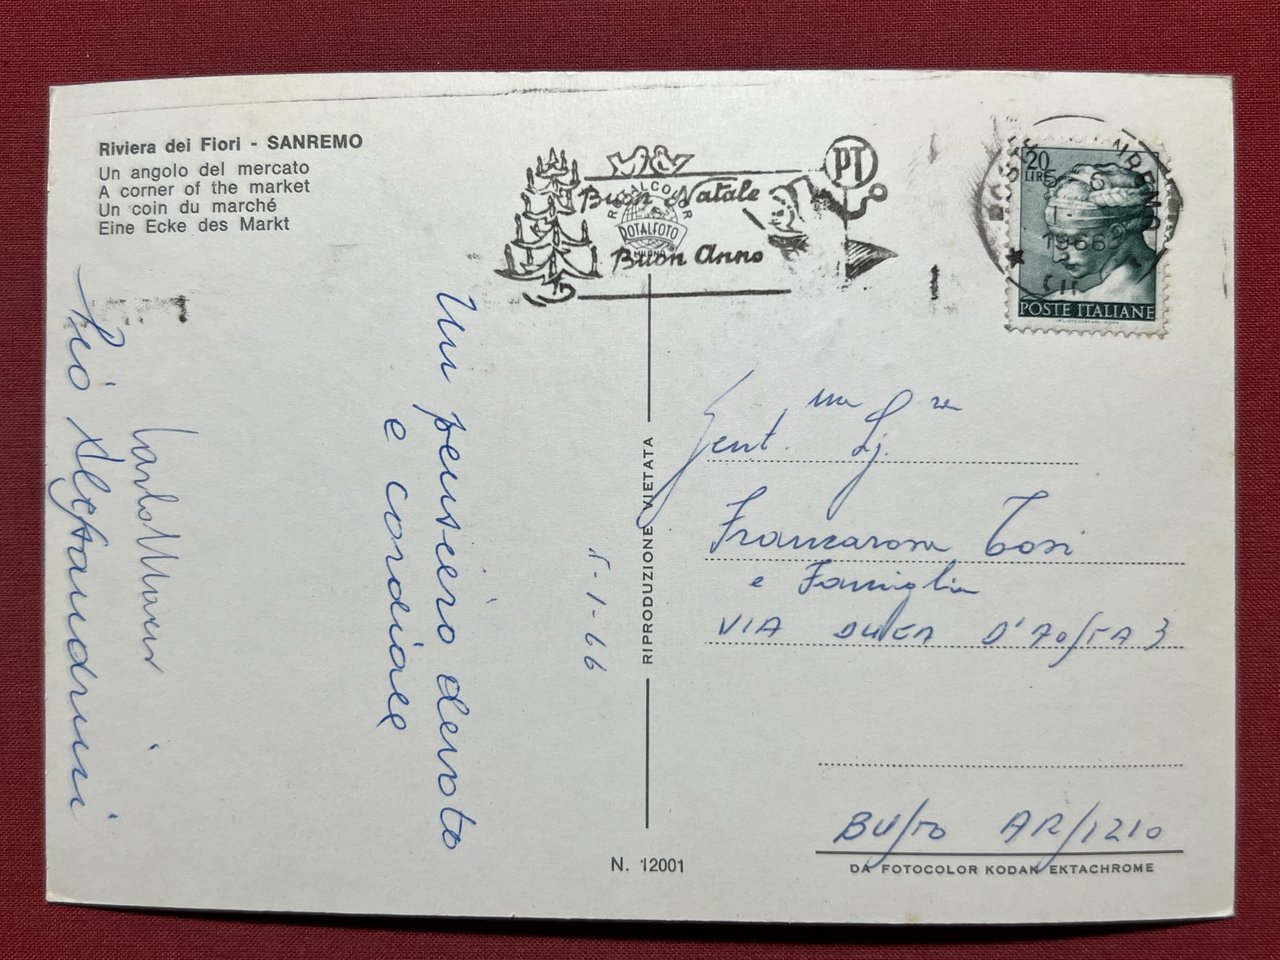 Riviera dei Fiori - SANREMO
Un angolo del mercato
A corner of the market
Un coin du marché
Eine Ecke des Markt
Buon Natale
ROTALFOTO
Buon Anno
PT
20
LIRE
1966
POSTE ITALIANE
Un pensiero devoto
e cordiale
5-1-66
RIPRODUZIONE VIETATA
Gent.ma Sig.ra
Francarosa Tosi
e Famiglia
VIA DUCA D'AOSTA 3
BUSTO ARSIZIO
N. 12001
DA FOTOCOLOR KODAK EKTACHROME